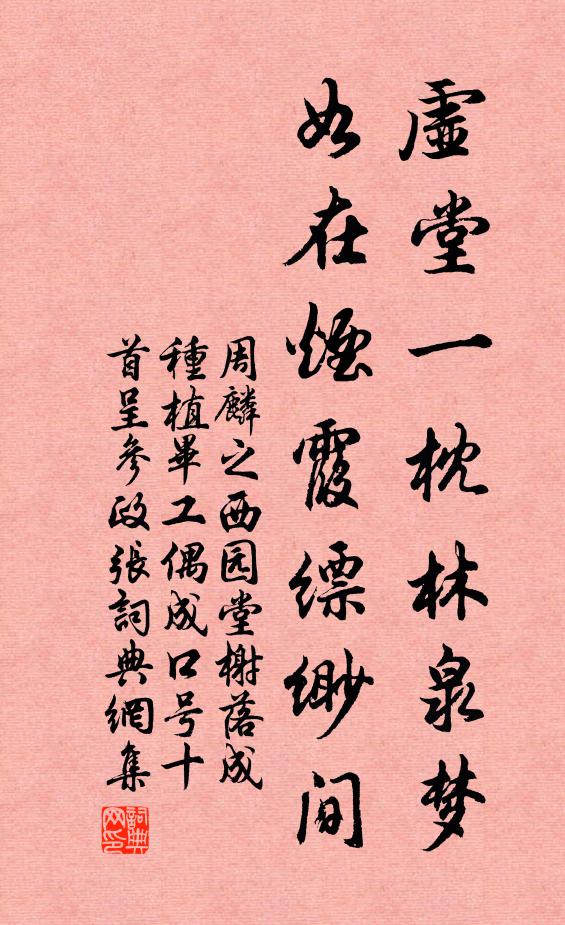 虚堂一枕林泉梦
如在煙霞缥缈间
周麟之西园堂榭落成
種植畢工偶成口号十
首呈參政張詞典網集
詞典网印